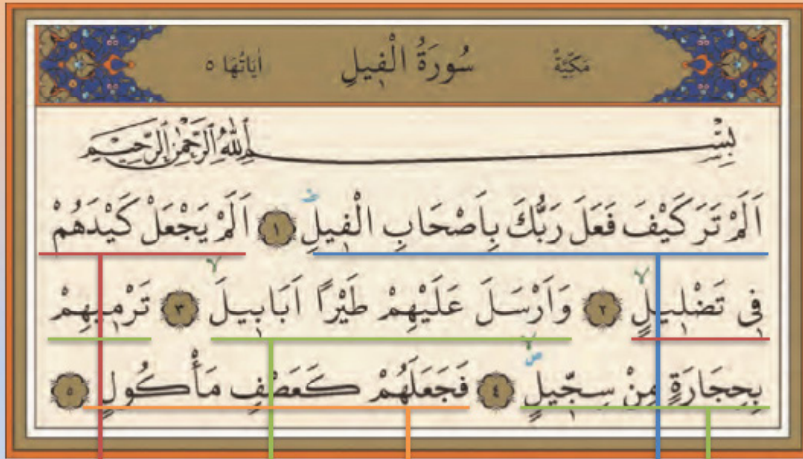 مَكِّيَّةٌ سُورَةُ الْفٖيلِ اٰيَاتُهَا ٥
بِسْمِ اللّٰهِ الرَّحْمٰنِ الرَّحٖيمِ
اَلَمْ تَرَ كَيْفَ فَعَلَ رَبُّكَ بِاَصْحَابِ الْفٖيلِ ﴿١﴾ اَلَمْ يَجْعَلْ كَيْدَهُمْ
فٖى تَضْلٖيلٍ ﴿٢﴾ وَاَرْسَلَ عَلَيْهِمْ طَيْرًا اَبَابٖيلَ ﴿٣﴾ تَرْمٖيهِمْ
بِحِجَارَةٍ مِنْ سِجّٖيلٍ ﴿٤﴾ فَجَعَلَهُمْ كَعَصْفٍ مَأْكُولٍ ﴿٥﴾